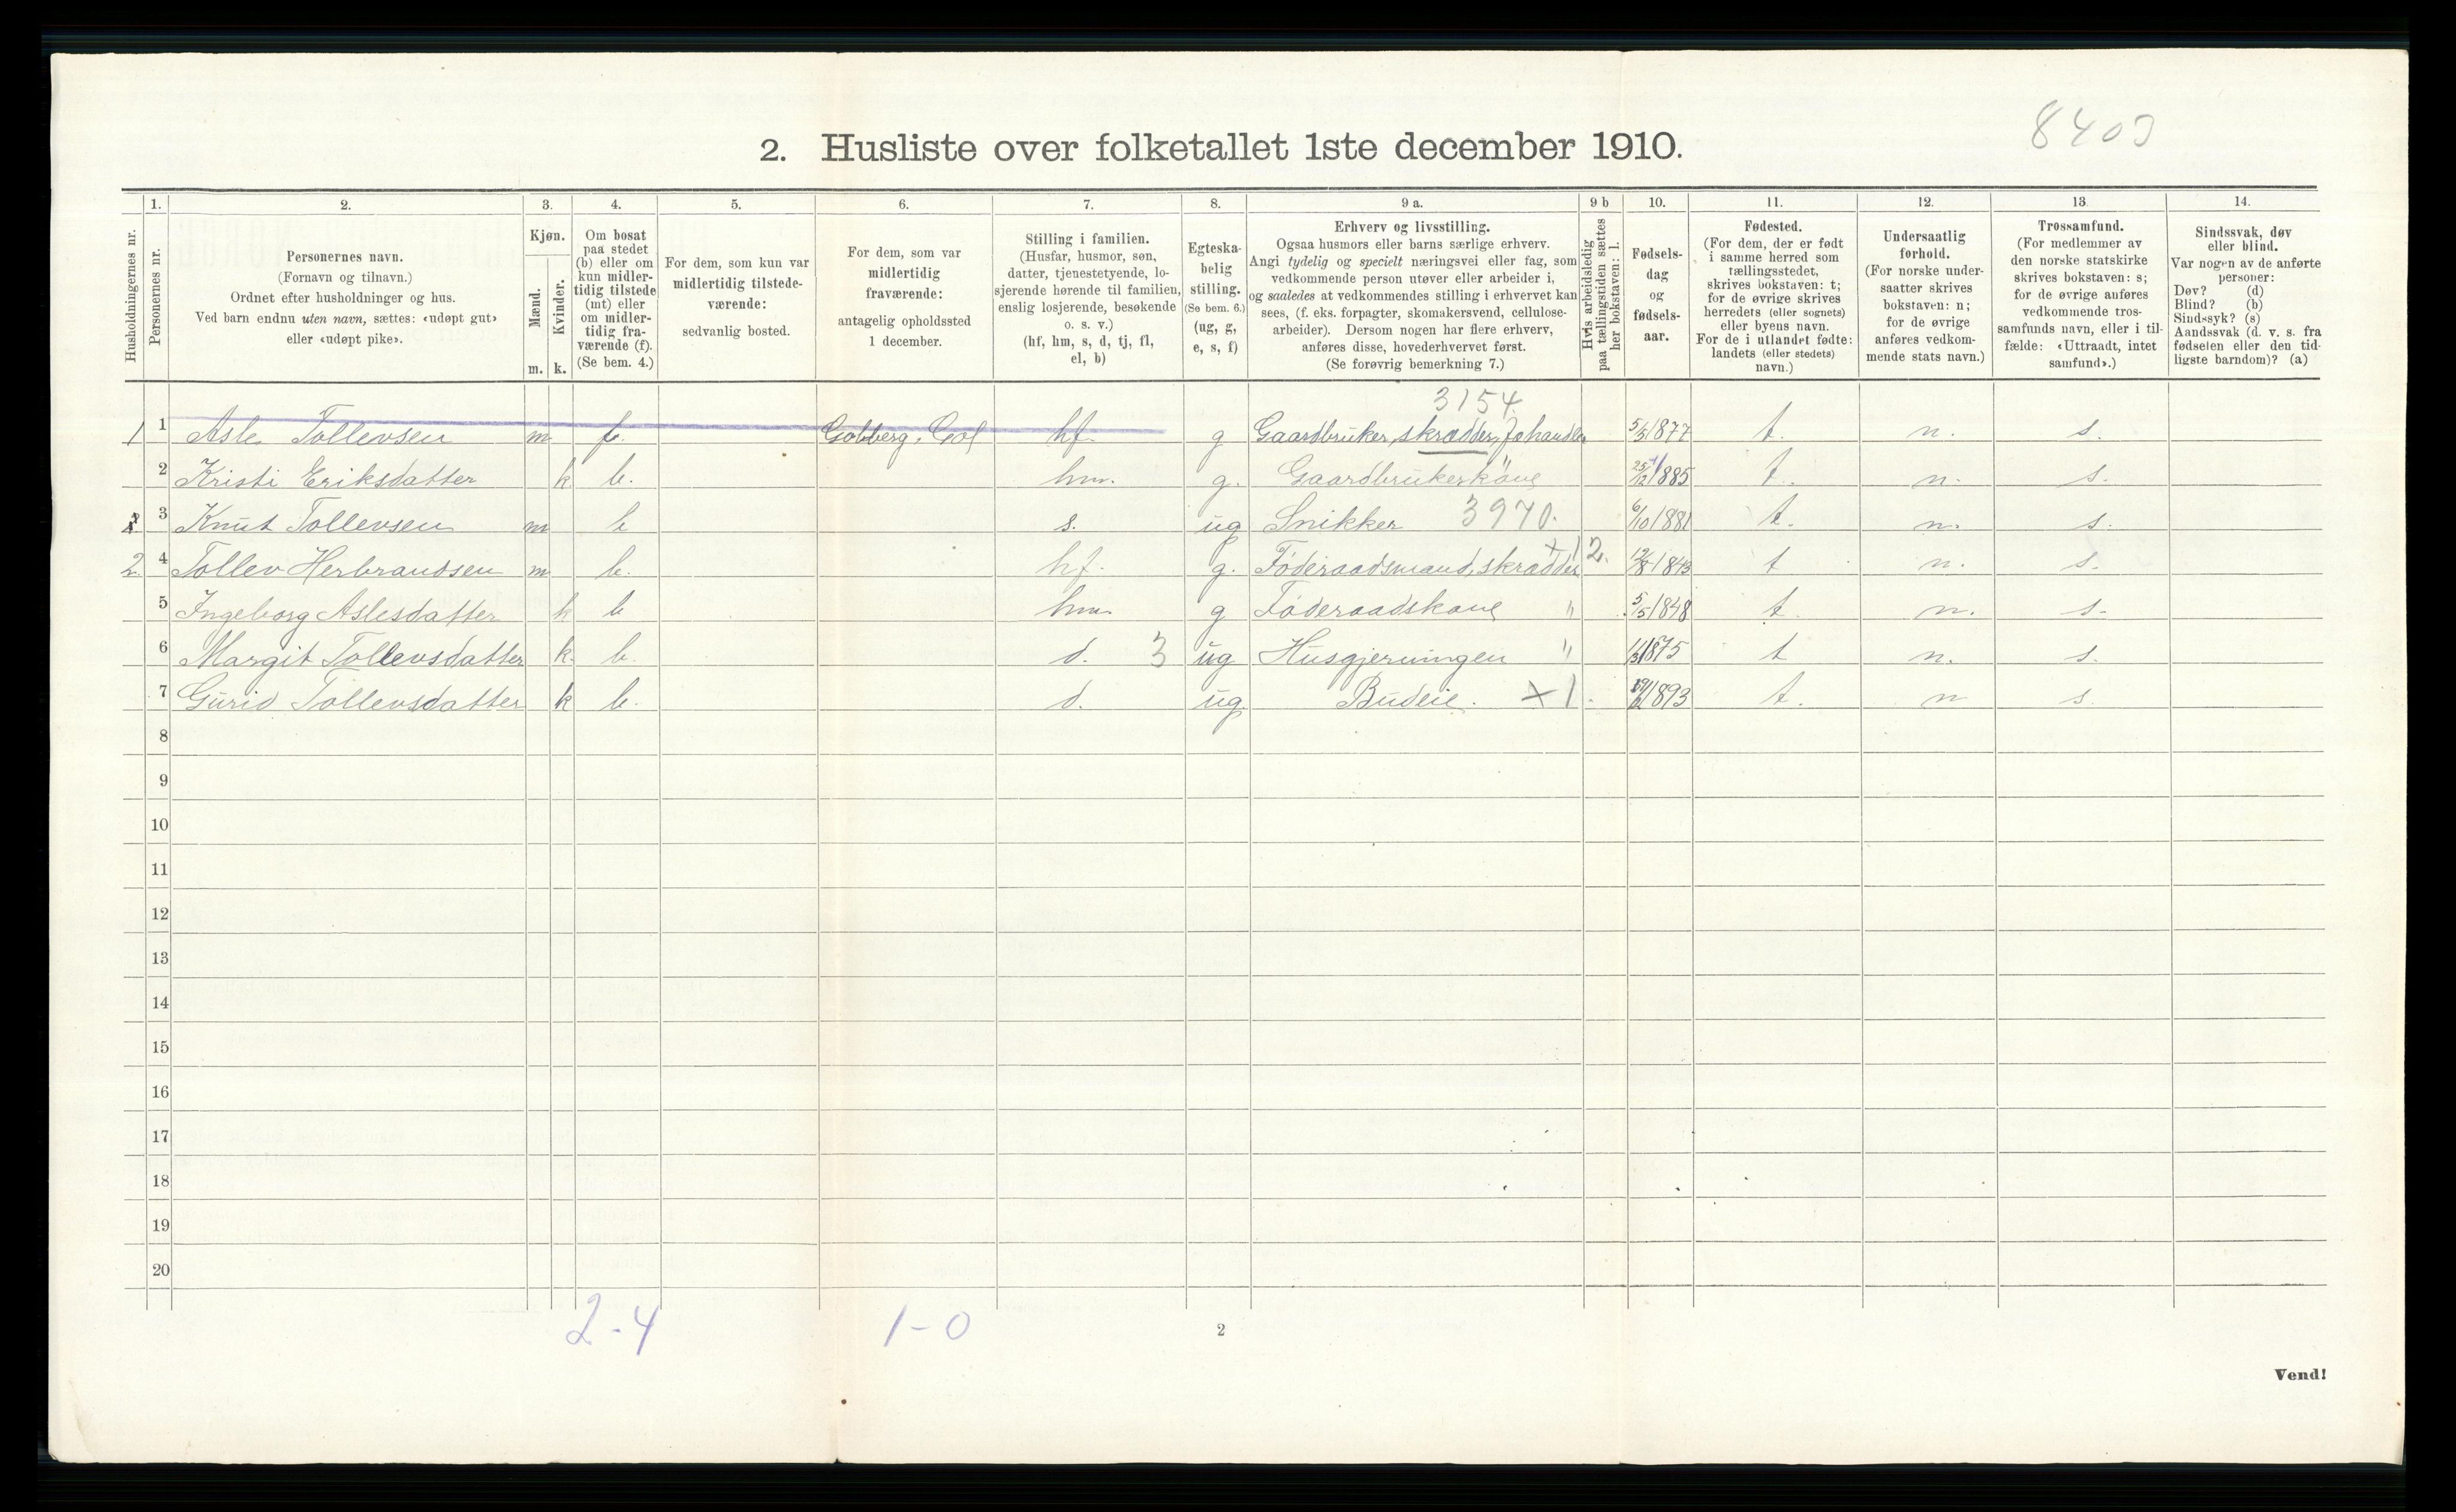 8403
2. Husliste over folketallet 1ste december 1910.
Husholdningernes nr.
1. Personernes nr.
2. Personernes navn.
(Fornavn og tilnavn.)
Ordnet efter husholdninger og hus.
Ved barn endnu uten navn, sættes: «udøpt gut»
eller «udøpt pike».
3. Kjøn.
Mænd. Kvinder.
m. k.
4. Om bosat
paa stedet
(b) eller om
kun midler-
tidig tilstede
(mt) eller
om midler-
tidig fra-
værende (f).
(Se bem. 4.)
5. For dem, som kun var
midlertidig tilstede-
værende:
sedvanlig bosted.
6. For dem, som var
midlertidig
fraværende:
antagelig opholdssted
1 december.
7. Stilling i familien.
(Husfar, husmor, søn,
datter, tjenestetyende, lo-
sjerende hørende til familien,
enslig losjerende, besøkende
o. s. v.)
(hf, hm, s, d, tj, fl,
el, b)
8. Egteska-
belig
stilling.
(Se bem. 6.)
(ug, g,
e, s, f)
9 a. Erhverv og livsstilling.
Ogsaa husmors eller barns særlige erhverv.
Angi tydelig og specielt næringsvei eller fag, som
vedkommende person utøver eller arbeider i,
og saaledes at vedkommendes stilling i erhvervet kan
sees, (f. eks. forpagter, skomakersvend, cellulose-
arbeider). Dersom nogen har flere erhverv,
anføres disse, hovederhvervet først.
(Se forøvrig bemerkning 7.)
9 b Hvis arbeidsledig
paa tællingstiden sættes
her bokstaven: l.
10. Fødsels-
dag
og
fødsels-
aar.
11. Fødested.
(For dem, der er født
i samme herred som
tællingsstedet,
skrives bokstaven: t;
for de øvrige skrives
herredets (eller sognets)
eller byens navn.
For de i utlandet fødte:
landets (eller stedets)
navn.)
12. Undersaatlig
forhold.
(For norske under-
saatter skrives
bokstaven: n;
for de øvrige
anføres vedkom-
mende stats navn.)
13. Trossamfund.
(For medlemmer av
den norske statskirke
skrives bokstaven: s;
for de øvrige anføres
vedkommende tros-
samfunds navn, eller i til-
fælde: «Uttraadt, intet
samfund».)
14. Sindssvak, døv
eller blind.
Var nogen av de anførte
personer:
Døv? (d)
Blind? (b)
Sindssyk? (s)
Aandssvak (d. v. s. fra
fødselen eller den tid-
ligste barndom)? (a)
3154
1 1 Asle Tollevsen m f. Golberg, Gol hf. g Gaardbruker, skrædder, 5/5 1877 t. n. s.
2 Kristi Eriksdatter k b. hm. g. Gaardbrukerkone " 25/12 1885 t. n. s.
3 Knut Tollevsen m b s. ug Snikker 3970. 6/10 1881 t. n. s.
2 4 Tollev Herbrandsen m b. hf. g. Føderaadsmand, skrædder x12. 12/8 1843 t n. s.
5 Ingeborg Aslesdatter k b hm. g Føderaadskone " 5/5 1848 t. n. s.
6 Margit Tollevsdatter k b. d. 3 ug Husgjerningen " 1875 t n. s.
7 Gurid Tollevsdatter k b. d. ug. Budeie. x1. 1893 t. n s.
8
9
10
11
12
13
14
15
16
17
18
19
20
2-4 1-0
2
Vend!